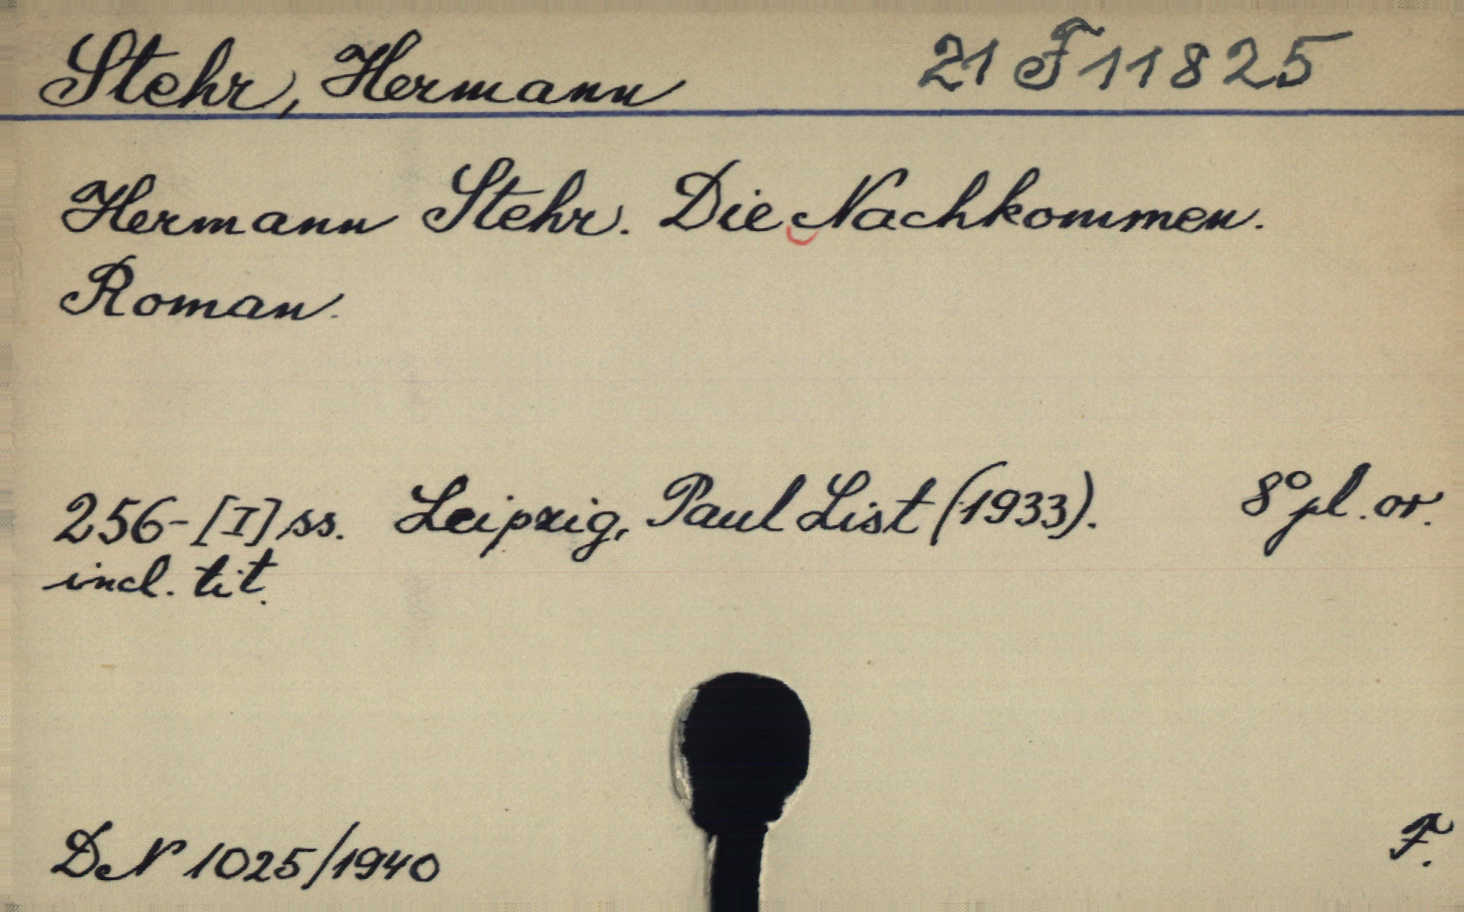 Stehr, Hermann 21 F 11825
Hermann Stehr. Die Nachkommen.
Roman.
256-[I] ss. Leipzig, Paul List (1933). 8° pl. or.
incl. tit.
DN 1025/1940 F.